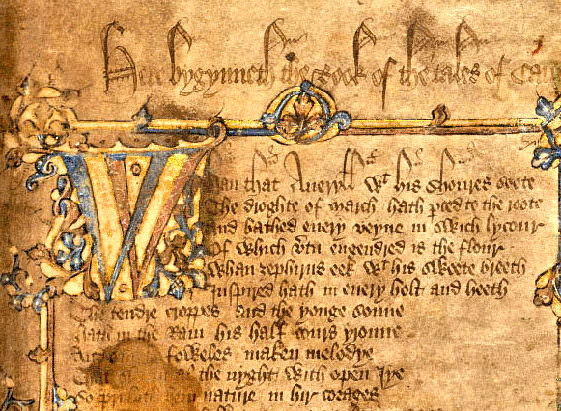 Here bygynneth the Book of the tales of Cau
Whan that Aueryll wt his shoures soote
The droghte of march hath pced to the roote
And bathed euery veyne in swich lycour
Of which vtu engendred is the flour
Whan zephirus eek wt his sweete breeth
Inspired hath in euery holt and heeth
The tendre croppes and the yonge sonne
Hath in the Ram his half cours yronne
And foweles maken melodye
That the nyght with open Iye
So priketh hem nature in hir corages